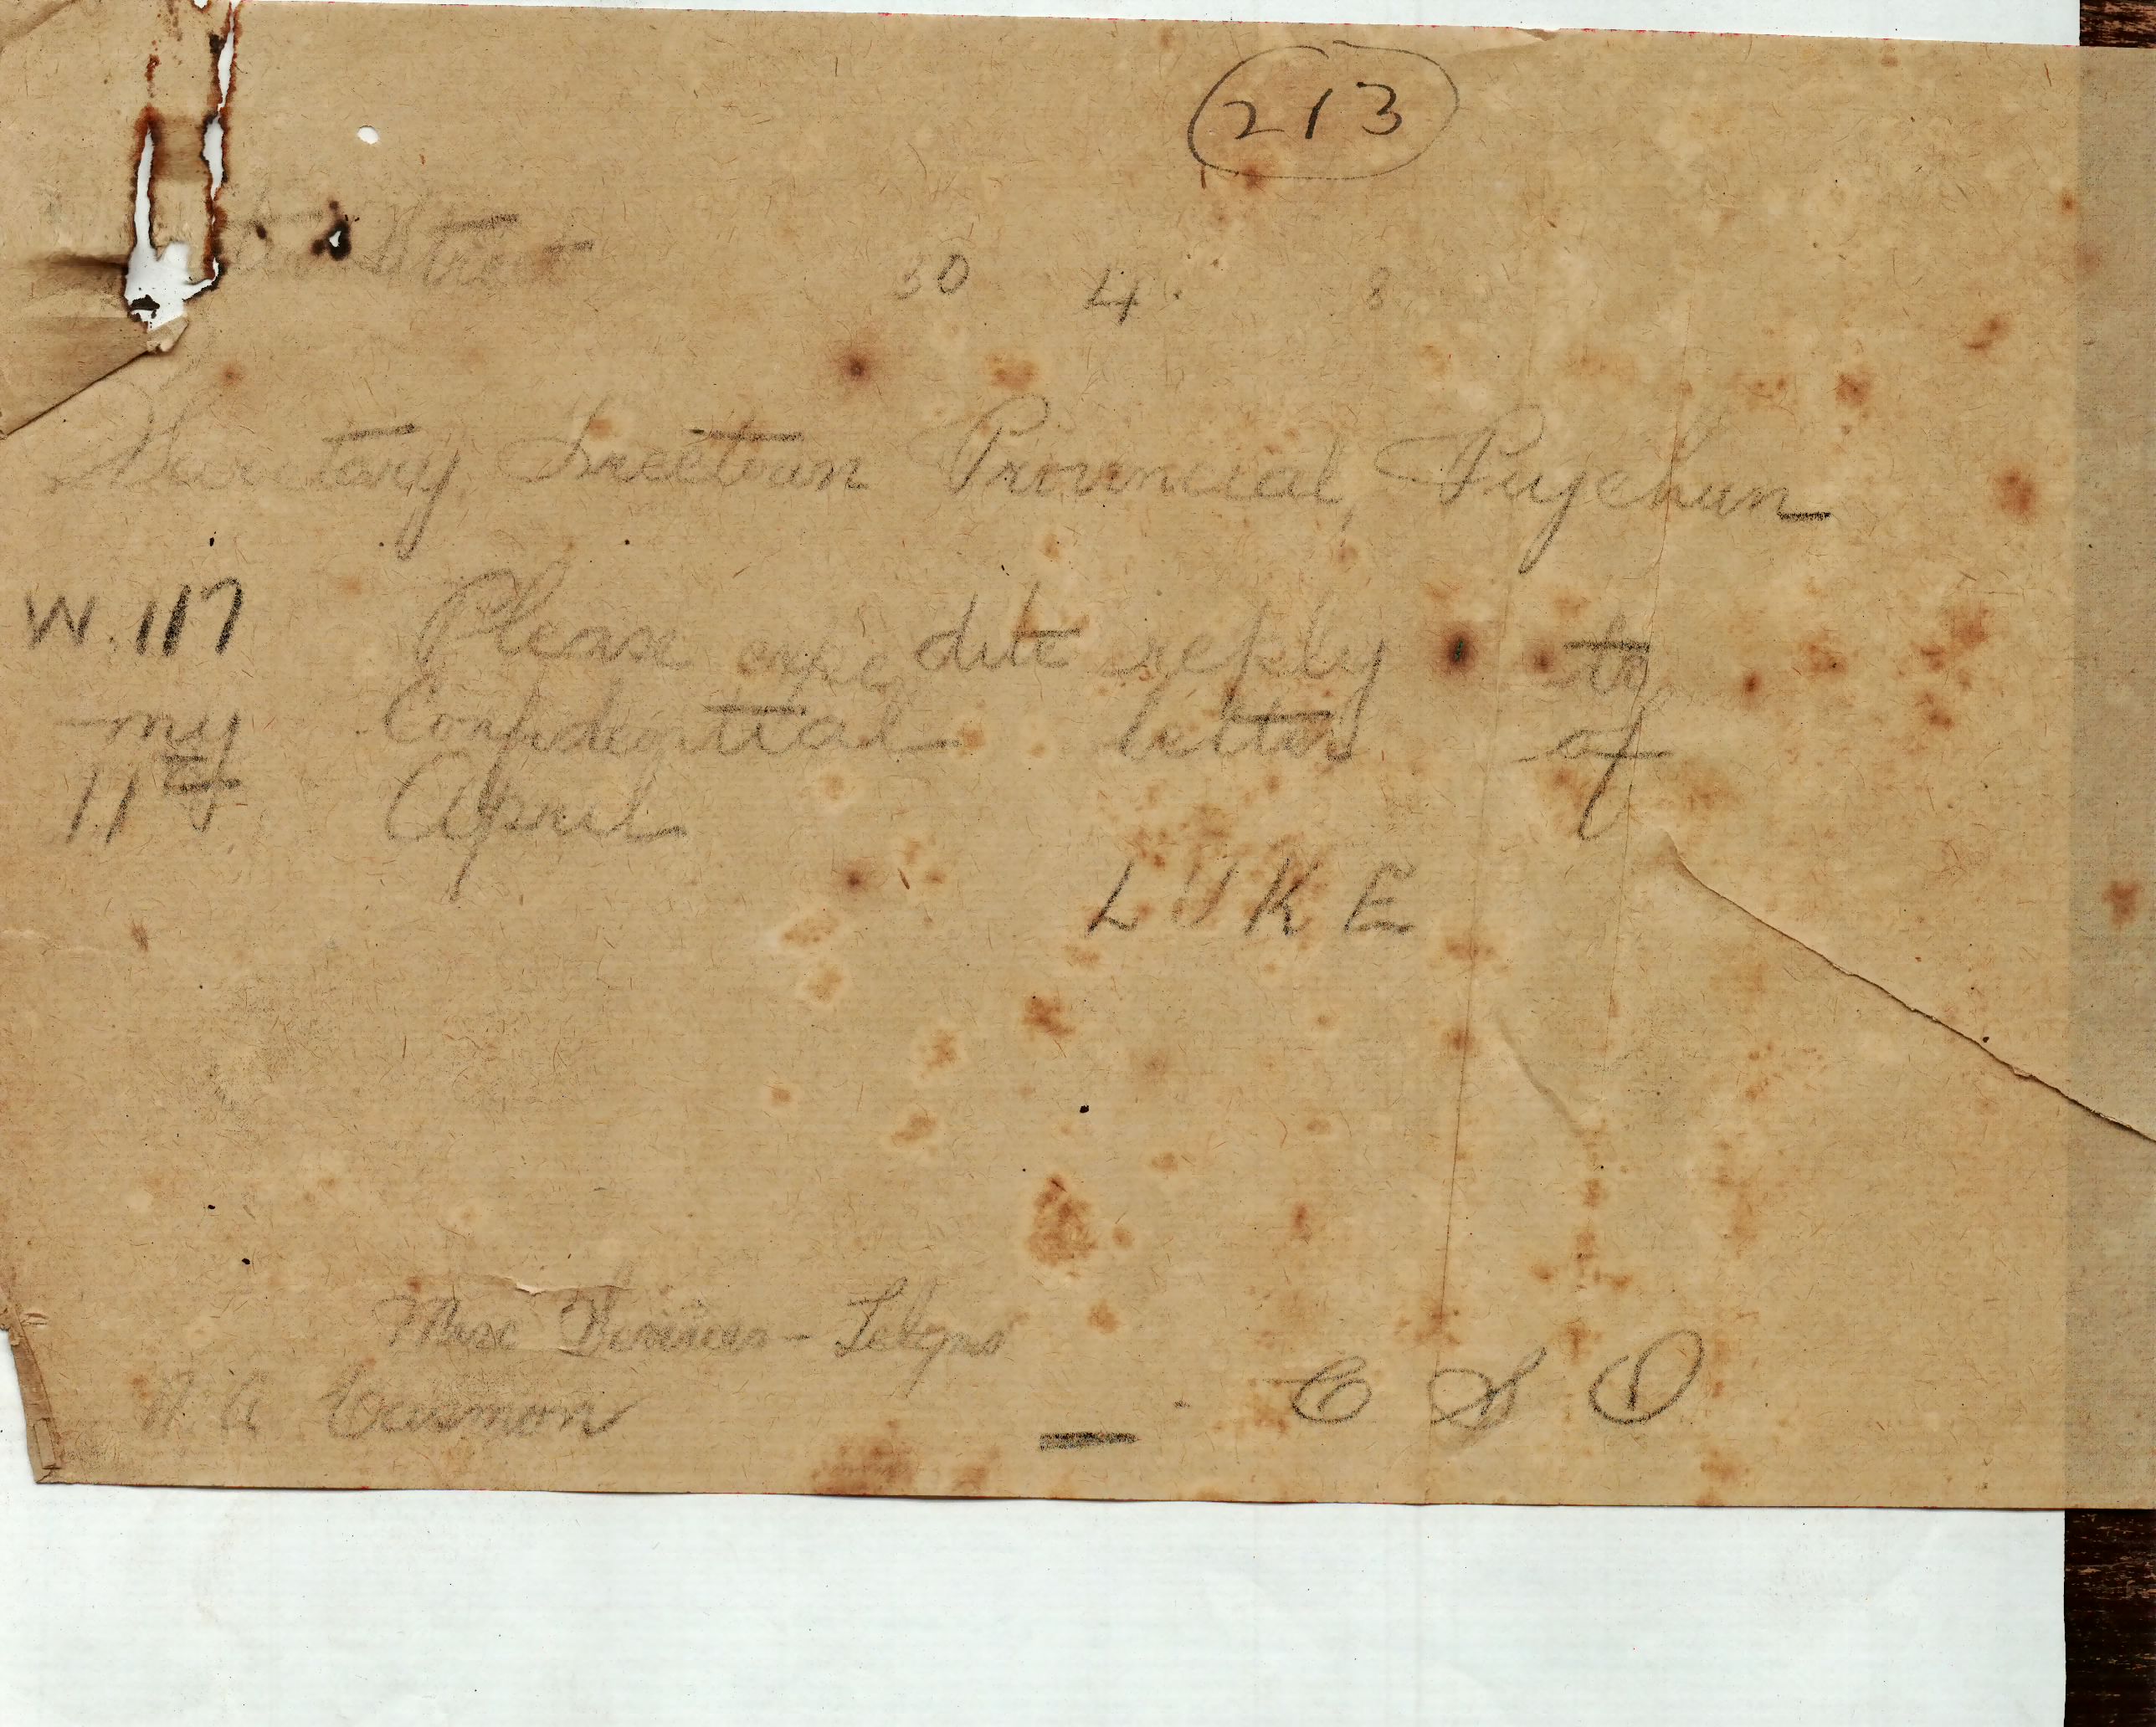 213
30 4 8
Secretary Freetown Provincial, Pujehun
W.117 Please expedite reply to
my Confidential letter of
11th April
LUKE
Misc Services - Telgms
A Easmon
C S O